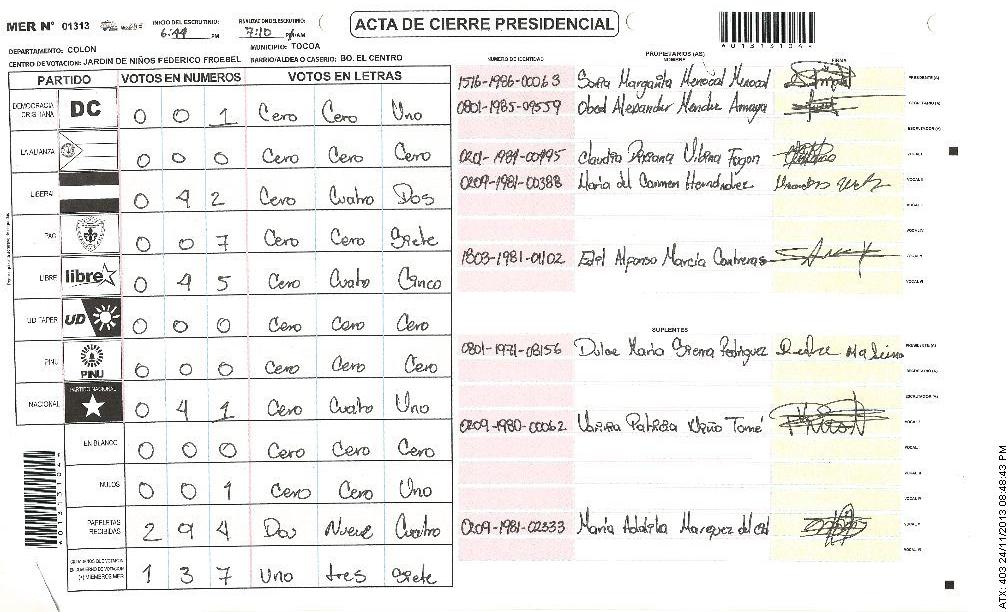 MER N° 01313
INICIO DEL ESCRUTINIO: 6:44 PM
FINALIZACION DEL ESCRUTINIO: 7:10 PM
ACTA DE CIERRE PRESIDENCIAL
DEPARTAMENTO: COLON
MUNICIPIO: TOCOA
CENTRO DE VOTACION: JARDIN DE NIÑOS FEDERICO FROEBEL
BARRIO/ALDEA O CASERIO: BO. EL CENTRO
PARTIDO VOTOS EN NUMEROS VOTOS EN LETRAS
DEMOCRACIA CRISTIANA DC 0 0 1 Cero Cero Uno
LA ALIANZA 0 0 0 Cero Cero Cero
LIBERAL 0 4 2 Cero Cuatro Dos
PAC 0 0 7 Cero Cero Siete
LIBRE libre 0 4 5 Cero Cuatro Cinco
UD FAPER UD 0 0 0 Cero Cero Cero
PINU PINU 0 0 0 Cero Cero Cero
NACIONAL PARTIDO NACIONAL 0 4 1 Cero Cuatro Uno
EN BLANCO 0 0 0 Cero Cero Cero
NULOS 0 0 1 Cero Cero Uno
PAPELETAS RECIBIDAS 2 9 4 Dos Nueve Cuatro
1 3 7 Uno tres Siete
NUMERO DE IDENTIDAD PROPIETARIOS (AS) NOMBRE FIRMA
1516-1986-00063 Sofia Margarita Mencal Mencal PRESIDENTE (A)
0801-1985-09559 Obed Alexander Mendez Amaya SECRETARIO (A)
ESCRUTADOR (A)
0201-1984-00495 Claudia Rosana VOCAL I
0209-1981-00388 Maria del Carmen Hernandez VOCAL II
1803-1981-01102 Edel Alfonso Marcia Contreras VOCAL V
VOCAL VI
SUPLENTES
0801-1971-08156 Dulce Maria Sierra Rodriguez PRESIDENTE (A)
SECRETARIO (A)
ESCRUTADOR (A)
0209-1980-00062 Patricia Tomé VOCAL I
0209-1981-02333 Maria Adelila Marquez del cid VOCAL V
VOCAL VI
A01313104
ATX: 403 24/11/2013 08:48:43 PM